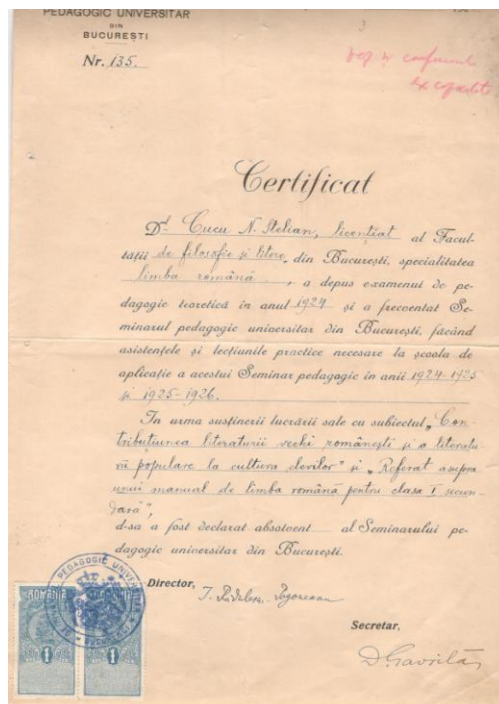 PEDAGOGIC UNIVERSITAR
DIN
BUCUREȘTI
Nr. 135.
3
Certificat
Dl Cucu N. Stelian, licențiat al Facul-
tății de filosofie și litere, din București, specialitatea
limba română, a depus examenul de pe-
dagogie teoretică în anul 1924 și a frecventat Se-
minarul pedagogic universitar din București, făcând
asistențele și lecțiunile practice necesare la școala de
aplicație a acestui Seminar pedagogic în anii 1924-1925
și 1925-1926.
In urma susținerii lucrării sale cu subiectul „Con-
tribuțiunea literaturii vechi românești și a literatu-
rii populare la cultura elevilor" și „Referat asupra
unui manual de limba română pentru clasa I secun-
dară",
d-sa a fost declarat absolvent al Seminarului pe-
dagogic universitar din București.
Director,
Secretar,
D. Gavrilă
PEDAGOGIC UNIVERSITAR
BUCUREȘTI
ROMÂNIA
1
1